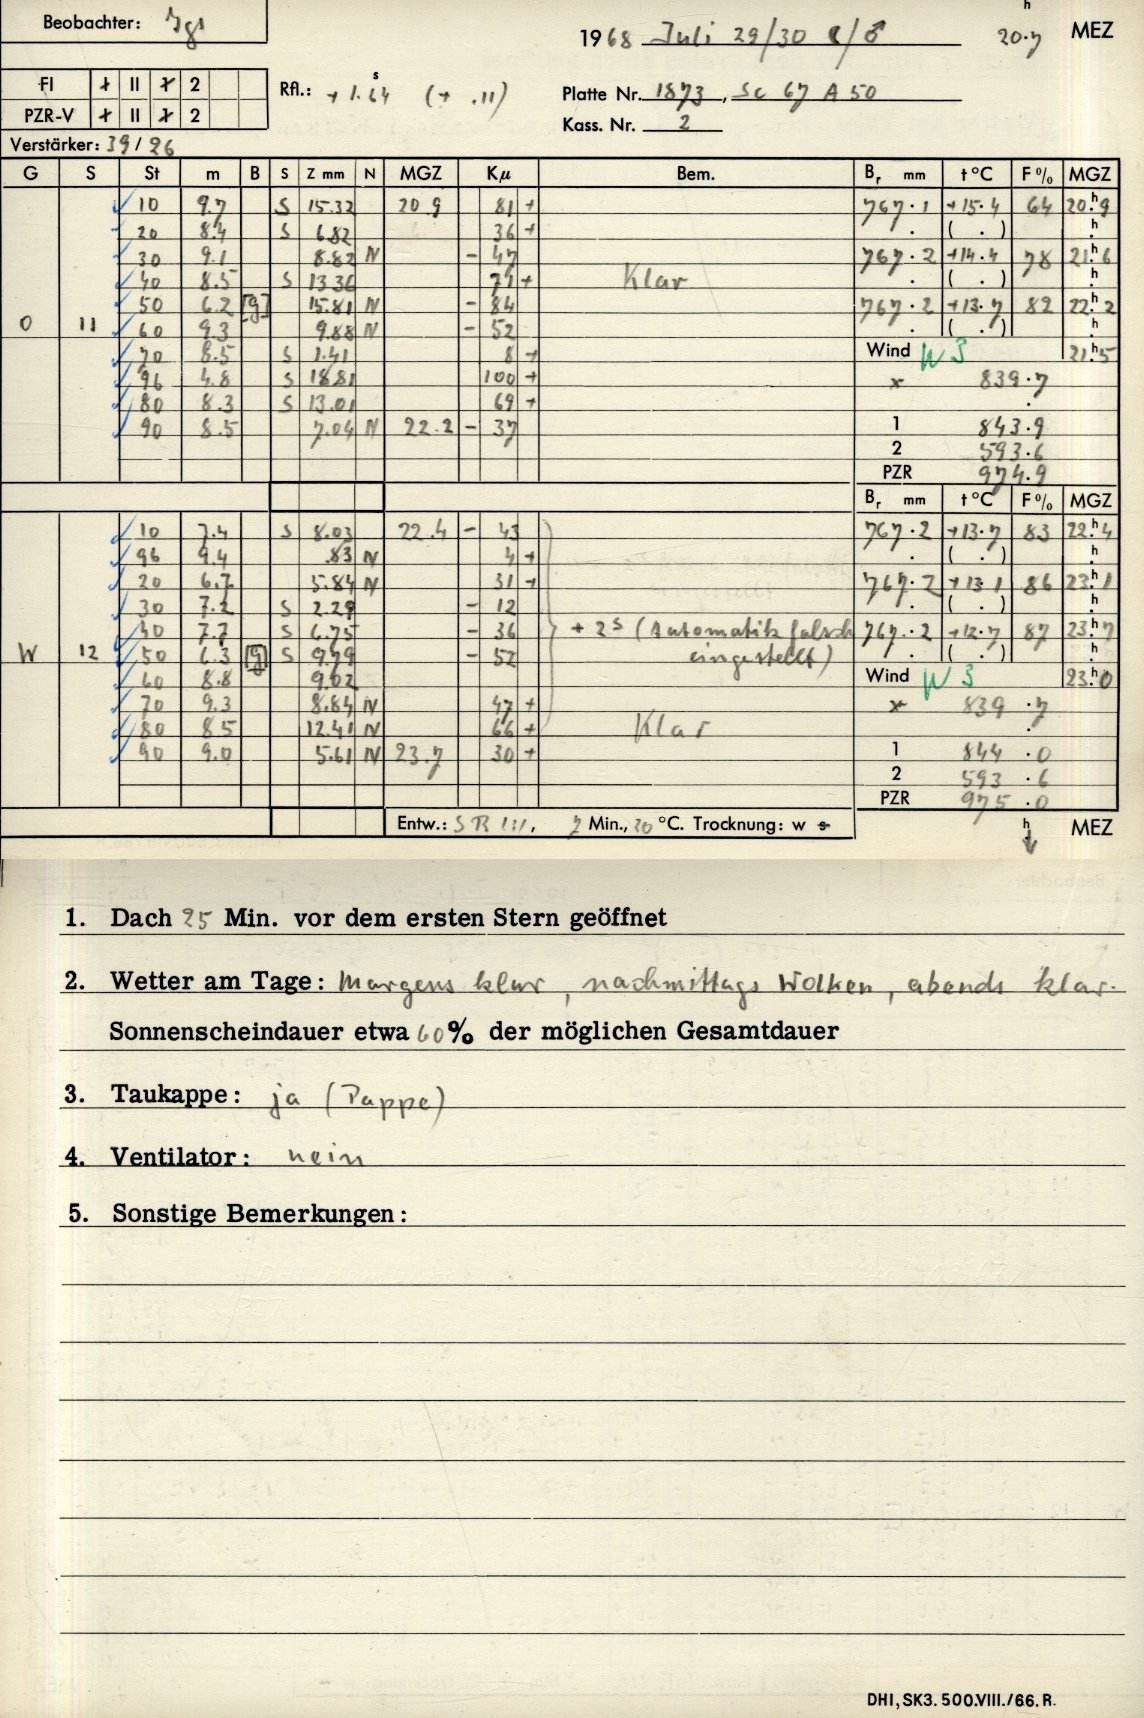 Beobachter: Jgs
1968 Juli 29/30 ☾/♂ 20.7 h MEZ
FI + II + 2
PZR-V + II + 2
Rfl.: +1.64 s (+ .11)
Platte Nr. 1873, Sc 67 A 50
Kass. Nr. 2
Verstärker: 39/26
G S St m B S Z mm N MGZ Kµ Bem. Br mm t °C F % MGZ
10 9.7 S 15.32 20.9 81 + 767.1 +15.4 64 20.h9
20 8.4 S 6.82 36 + . ( . ) h
30 9.1 8.82 N - 47 767.2 +14.4 78 21.h6
40 8.5 S 13.36 71 + Klar . ( . ) h
50 6.2 [g] 15.81 N - 84 767.2 +13.7 82 22.h2
O 11 60 9.3 9.88 N - 52 . ( . ) h
70 8.5 S 1.41 8 + Wind W 3 21.h5
96 4.8 S 18.81 100 + x 839.7
80 8.3 S 13.01 69 + .
90 8.5 7.04 N 22.2 - 37 1 843.9
2 593.6
PZR 974.9
Br mm t °C F % MGZ
10 7.4 S 8.03 22.4 - 43 767.2 +13.7 83 22.h4
96 9.4 .83 N 4 + . ( . ) h
20 6.7 5.84 N 31 + 767.2 +13.1 86 23.h1
30 7.2 S 2.29 - 12 . ( . ) h
40 7.7 S 6.75 - 36 + 2s (Automatik falsch 767.2 +12.7 87 23.h7
W 12 50 6.3 [g] S 9.79 - 52 eingestellt) . ( . ) h
60 8.8 9.02 Wind W 3 23.h0
70 9.3 8.84 N 47 + x 839.7
80 8.5 12.41 N 66 + Klar .
90 9.0 5.61 N 23.7 30 + 1 844.0
2 593.6
PZR 975.0
Entw.: SR III, 7 Min., 20 °C. Trocknung: w s h MEZ
1. Dach 25 Min. vor dem ersten Stern geöffnet
2. Wetter am Tage: Morgens klar, nachmittags Wolken, abends klar.
Sonnenscheindauer etwa 60% der möglichen Gesamtdauer
3. Taukappe: ja (Pappe)
4. Ventilator: nein
5. Sonstige Bemerkungen:
DHI, SK3. 500.VIII./66. R.